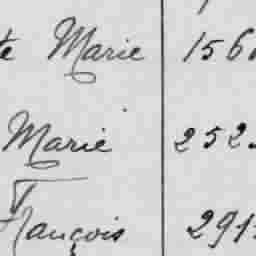 te Marie 156
Marie 252
François 291